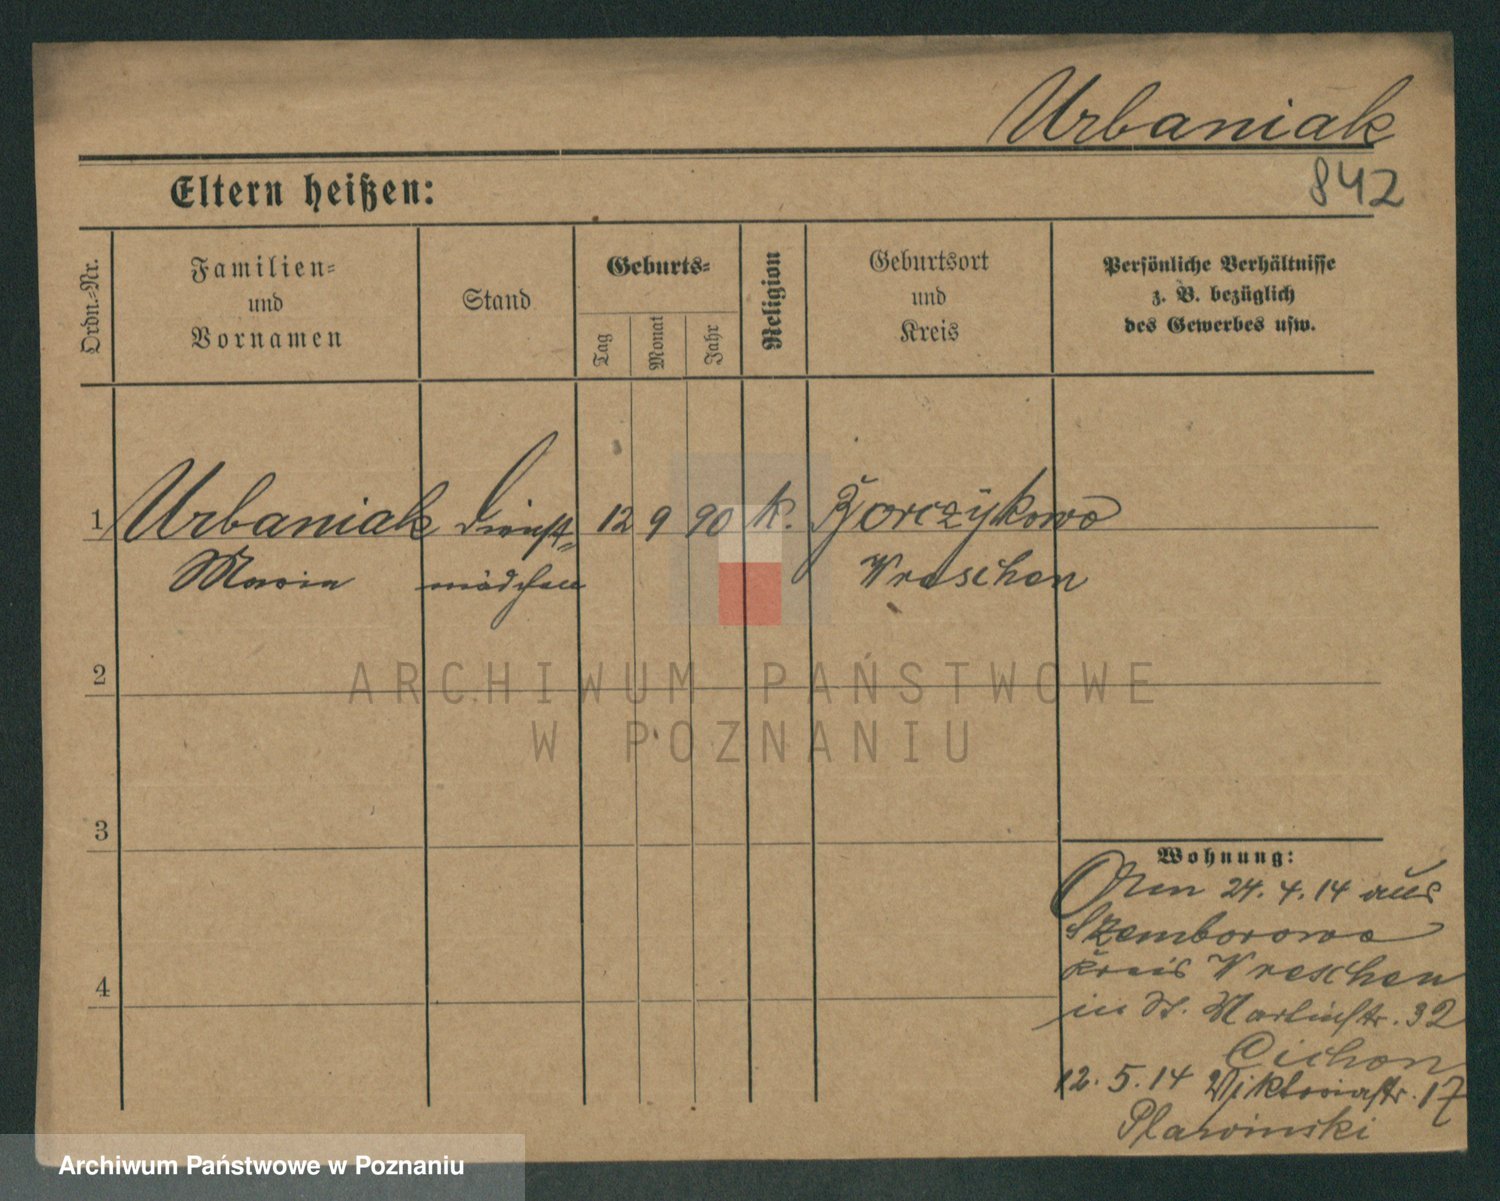 Urbaniak
842
Eltern heißen:
Ordn.-Nr.
Familien-
und
Vornamen
Stand
Geburts-
Tag
Monat
Jahr
Religion
Geburtsort
und
Kreis
Persönliche Verhältnisse
z. B. bezüglich
des Gewerbes usw.
1 Urbaniak Dienst- 12 9 90 k. Gorczykowo
Maria mädchen Wreschen
2
ARCHIWUM PAŃSTWOWE
W POZNANIU
3
Wohnung:
24. 4. 14 aus
Szemborowo
Kreis Wreschen
4
in St. Martinstr. 32
Cichon
12. 5. 14 Viktoriastr. 17
Plawinski
Archiwum Państwowe w Poznaniu